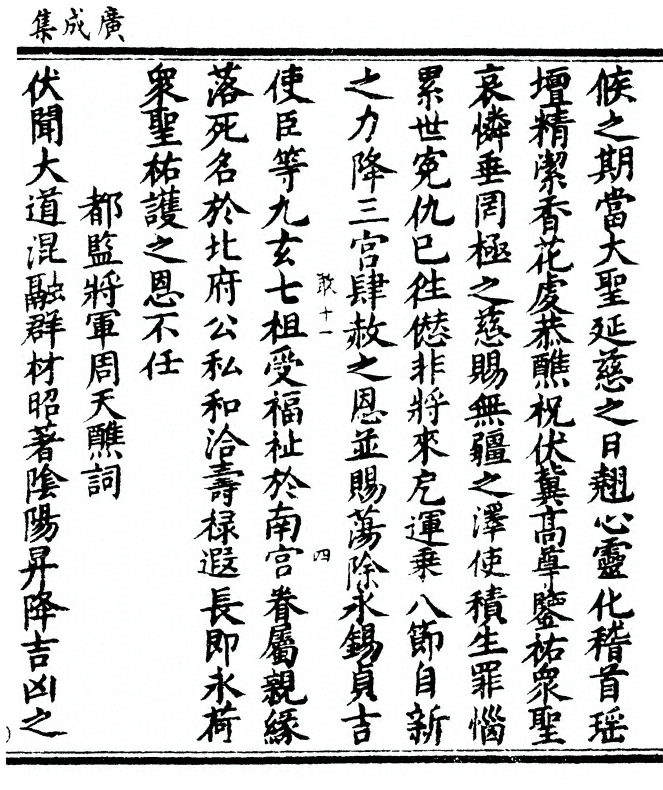 廣成集
候之期當大聖延慈之日翹心靈化稽首瑶
壇精潔香花虔恭醮祝伏兾高尊鑒祐衆聖
哀憐垂罔極之慈賜無疆之澤使積生罪惱
累世寃仇已往愆非將來厄運乗八節自新
之力降三宫肆赦之恩並賜蕩除永錫貞吉
敢十一
四
使臣等九玄七祖受福祉於南宫眷屬親緣
落死名於北府公私和洽壽禄遐長即永荷
衆聖祐護之恩不任
都監將軍周天醮詞
伏聞大道混融群材昭著陰陽昇降吉凶之